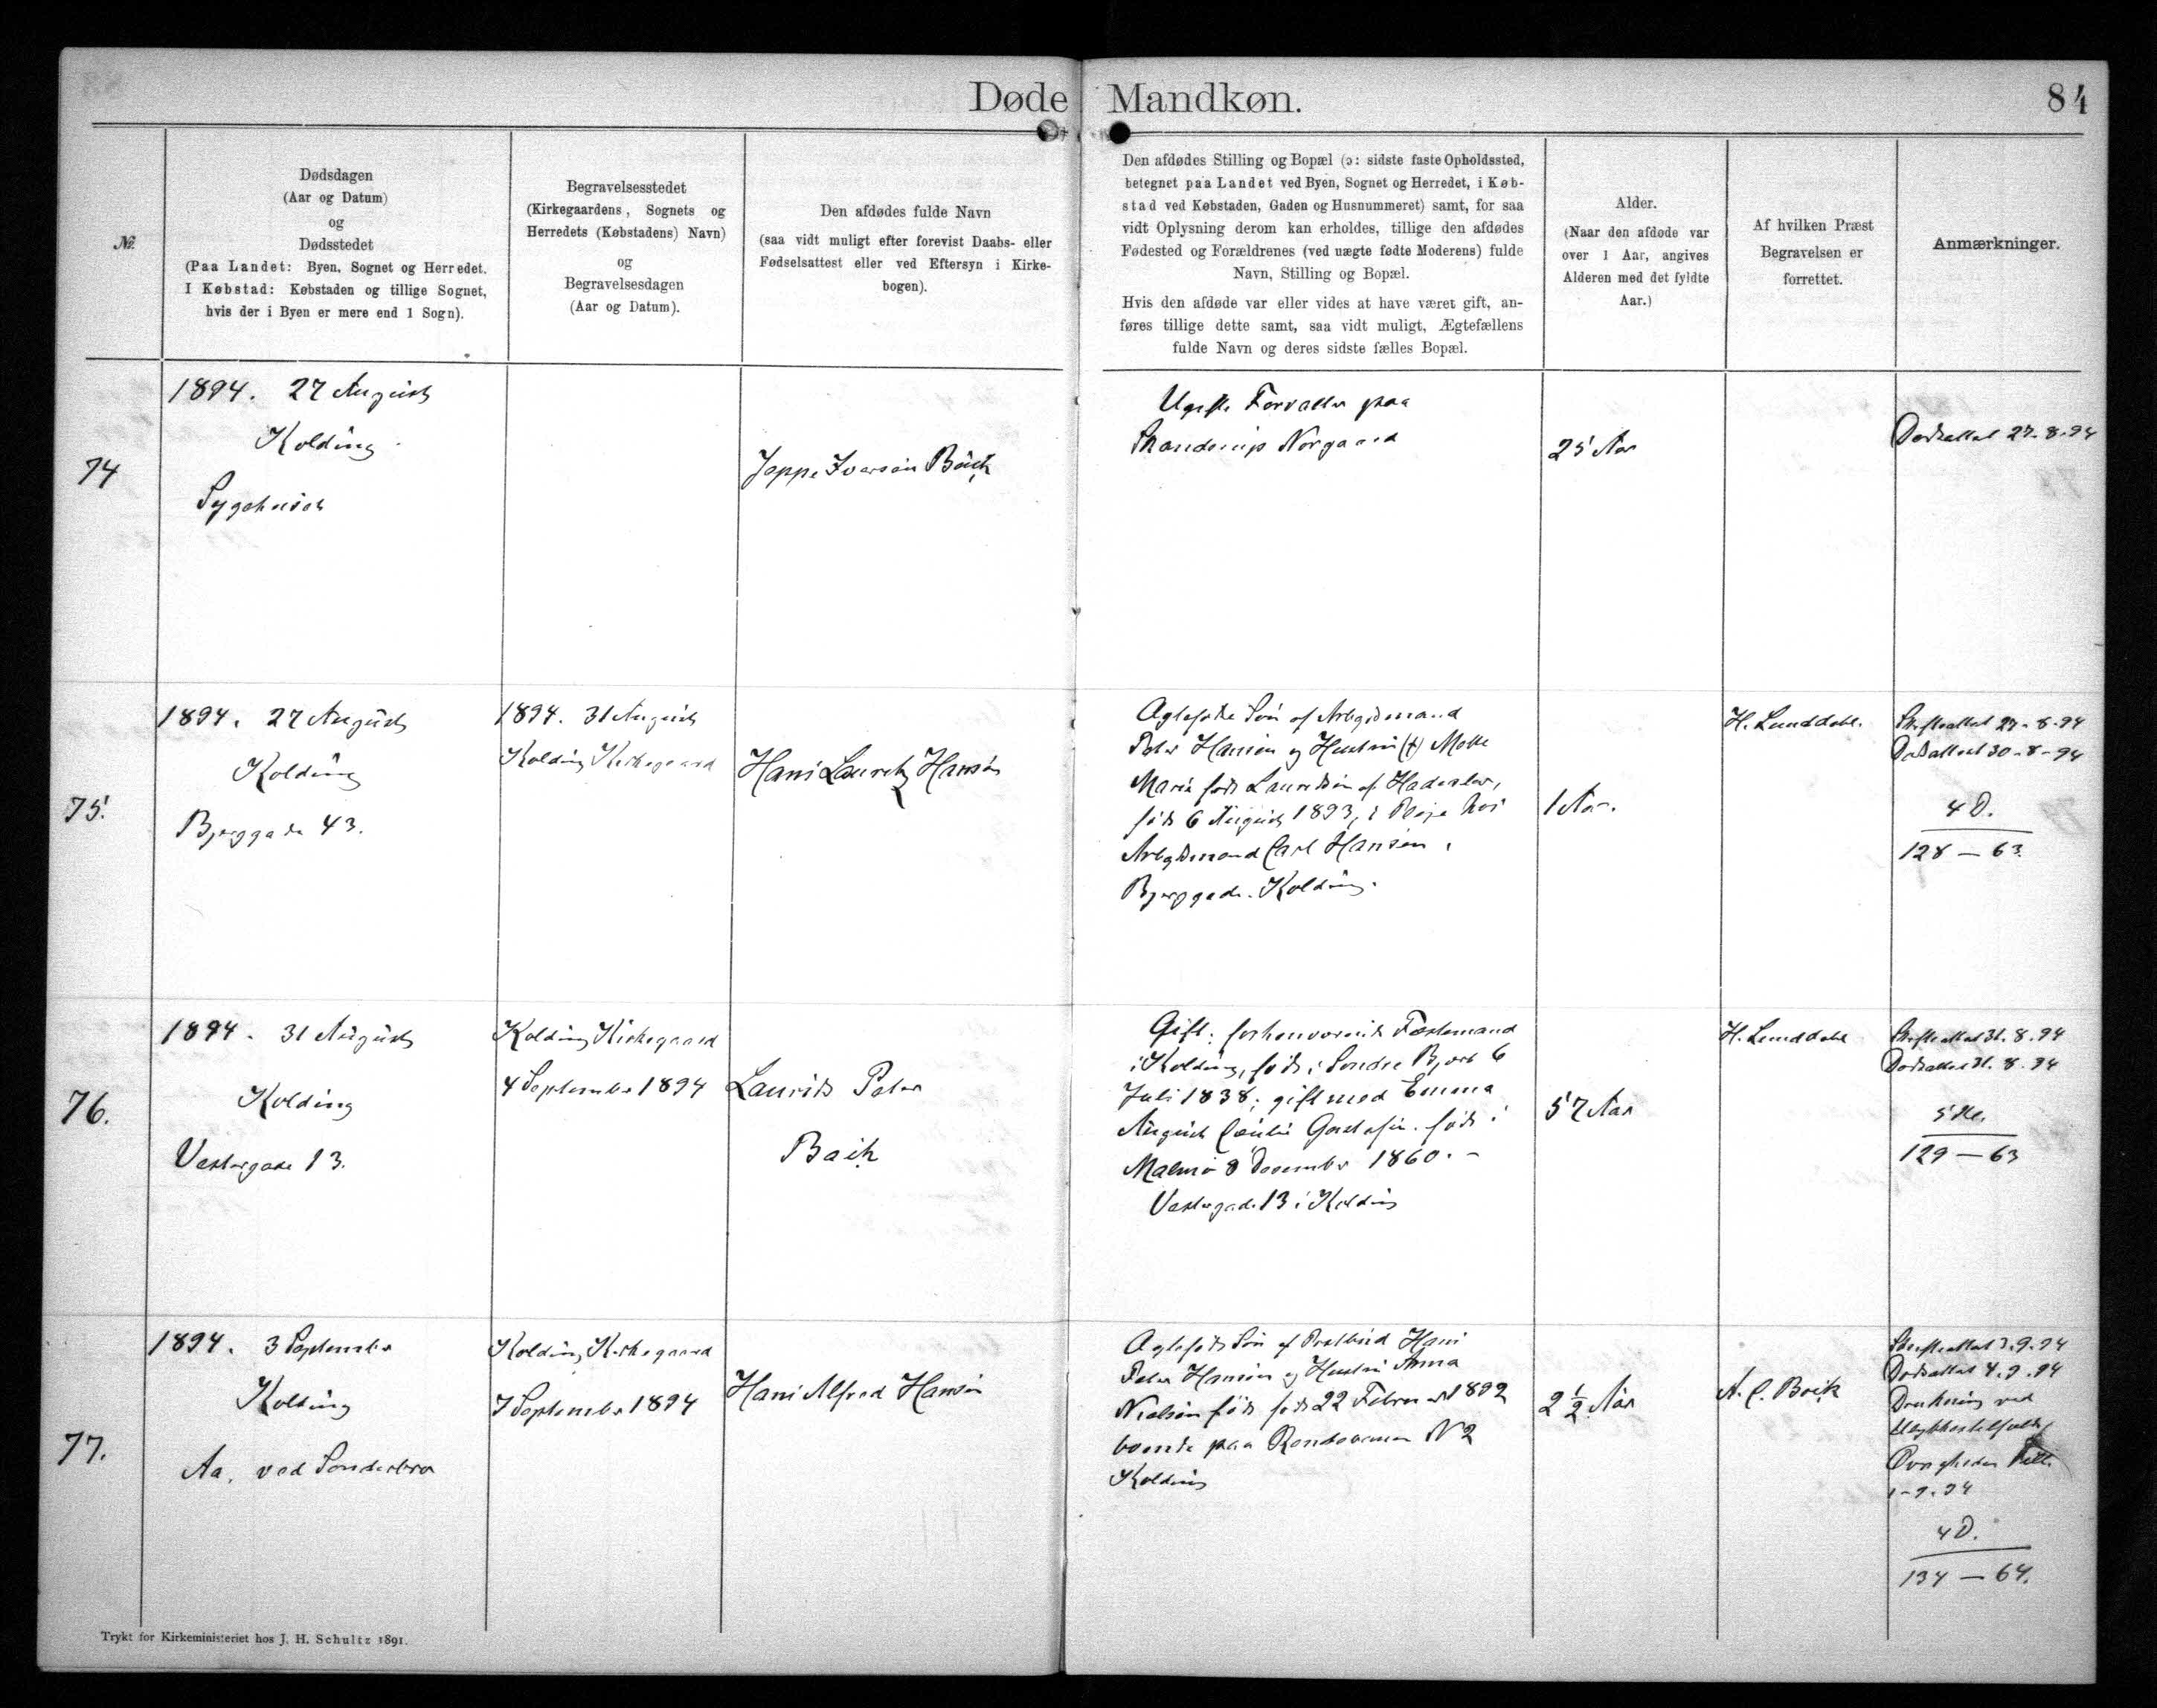 Døde Mandkøn.
84
№.
Dødsdagen
(Aar og Datum)
og
Dødsstedet
(Paa Landet: Byen, Sognet og Herredet.
I Købstad: Købstaden og tillige Sognet,
hvis der i Byen er mere end 1 Sogn).
Begravelsesstedet
(Kirkegaardens, Sognets og
Herredets (Købstadens) Navn)
og
Begravelsesdagen
(Aar og Datum).
Den afdødes fulde Navn
(saa vidt muligt efter forevist Daabs- eller
Fødselsattest eller ved Eftersyn i Kirke-
bogen).
Den afdødes Stilling og Bopæl (ɔ: sidste faste Opholdssted,
betegnet paa Landet ved Byen, Sognet og Herredet, i Køb-
stad ved Købstaden, Gaden og Husnummeret) samt, for saa
vidt Oplysning derom kan erholdes, tillige den afdødes
Fødested og Forældrenes (ved uægte fødte Moderens) fulde
Navn, Stilling og Bopæl.
Hvis den afdøde var eller vides at have været gift, an-
føres tillige dette samt, saa vidt muligt, Ægtefællens
fulde Navn og deres sidste fælles Bopæl.
Alder.
(Naar den afdøde var
over 1 Aar, angives
Alderen med det fyldte
Aar.)
Af hvilken Præst
Begravelsen er
forrettet.
Anmærkninger.
74
1894. 27 August
Kolding
Sygehuset
Jeppe Iversen Buch
Ugift Forvalter paa
Skanderup Nørgaard
25 Aar
Dødsattest 27-8-94
75.
1894. 27 August
Kolding
Bjerggade 43.
1894. 31 August
Kolding Kirkegaard
Hans Lauritz Hansen
Ægtefødt Søn af Arbejdsmand
Peter Hansen og Hustru (†) Mette
Marie født Lauridsen af Haderslev,
født 6 August 1893, i Pleje hos
Arbejdsmand Carl Hansen,
Bjerggade. Kolding.
1 Aar.
H. Lunddahl.
Skifteattest 27-8-94
Dødsattest 30-8-94
4 D.
128 — 63.
76.
1894. 31 August
Kolding
Vestergade 13.
Kolding Kirkegaard
4 September 1894
Laurids Peter
Bach
Gift; forhenværende Fæstemand
i Kolding, født i Søndre Bjert 6
Juli 1838; gift med Emma
August Cecilie født i
Malmø 8 December 1860. -
Vestergade 13 i Kolding
57 Aar
H. Lunddahl
Skifteattest 31.8.94
Dødsattest 31.8.94
129 — 63
77.
1894. 3 September
Kolding
Aa, ved Sønderbro
Kolding Kirkegaard
7 September 1894
Hans Alfred Hansen
Ægtefødt Søn af Postbud Hans
Peter Hansen og Hustru Anna
Nielsen født født 22 Februar 1892
boende paa Rendebanen N 2
Kolding
2 1/2 Aar
A. C. Boeck
Skifteattest 3.9.94
Dødsattest 4.9.94
Drukning ved
Ulykkestilfælde
4 D.
134 — 64.
Trykt for Kirkeministeriet hos J. H. Schultz 1891.